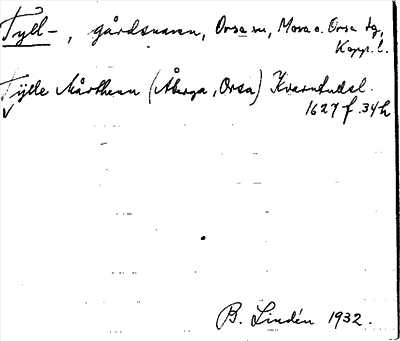 Tyll-, gårdsnamn, Orsa sn, Mora o. Orsa tg,
Kopp. l.
Tylle Mårthenn (Åberga, Orsa) Kvarntullsl.
1627 f. 34 h
B. Lindén 1932.